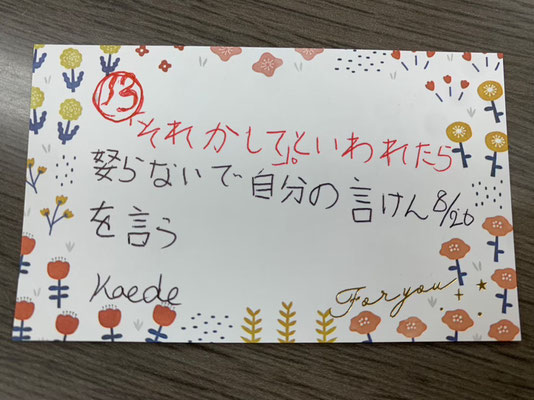 13
「それかして」。といわれたら
怒らないで自分の言けん 8/20
を言う
Kaede
For you